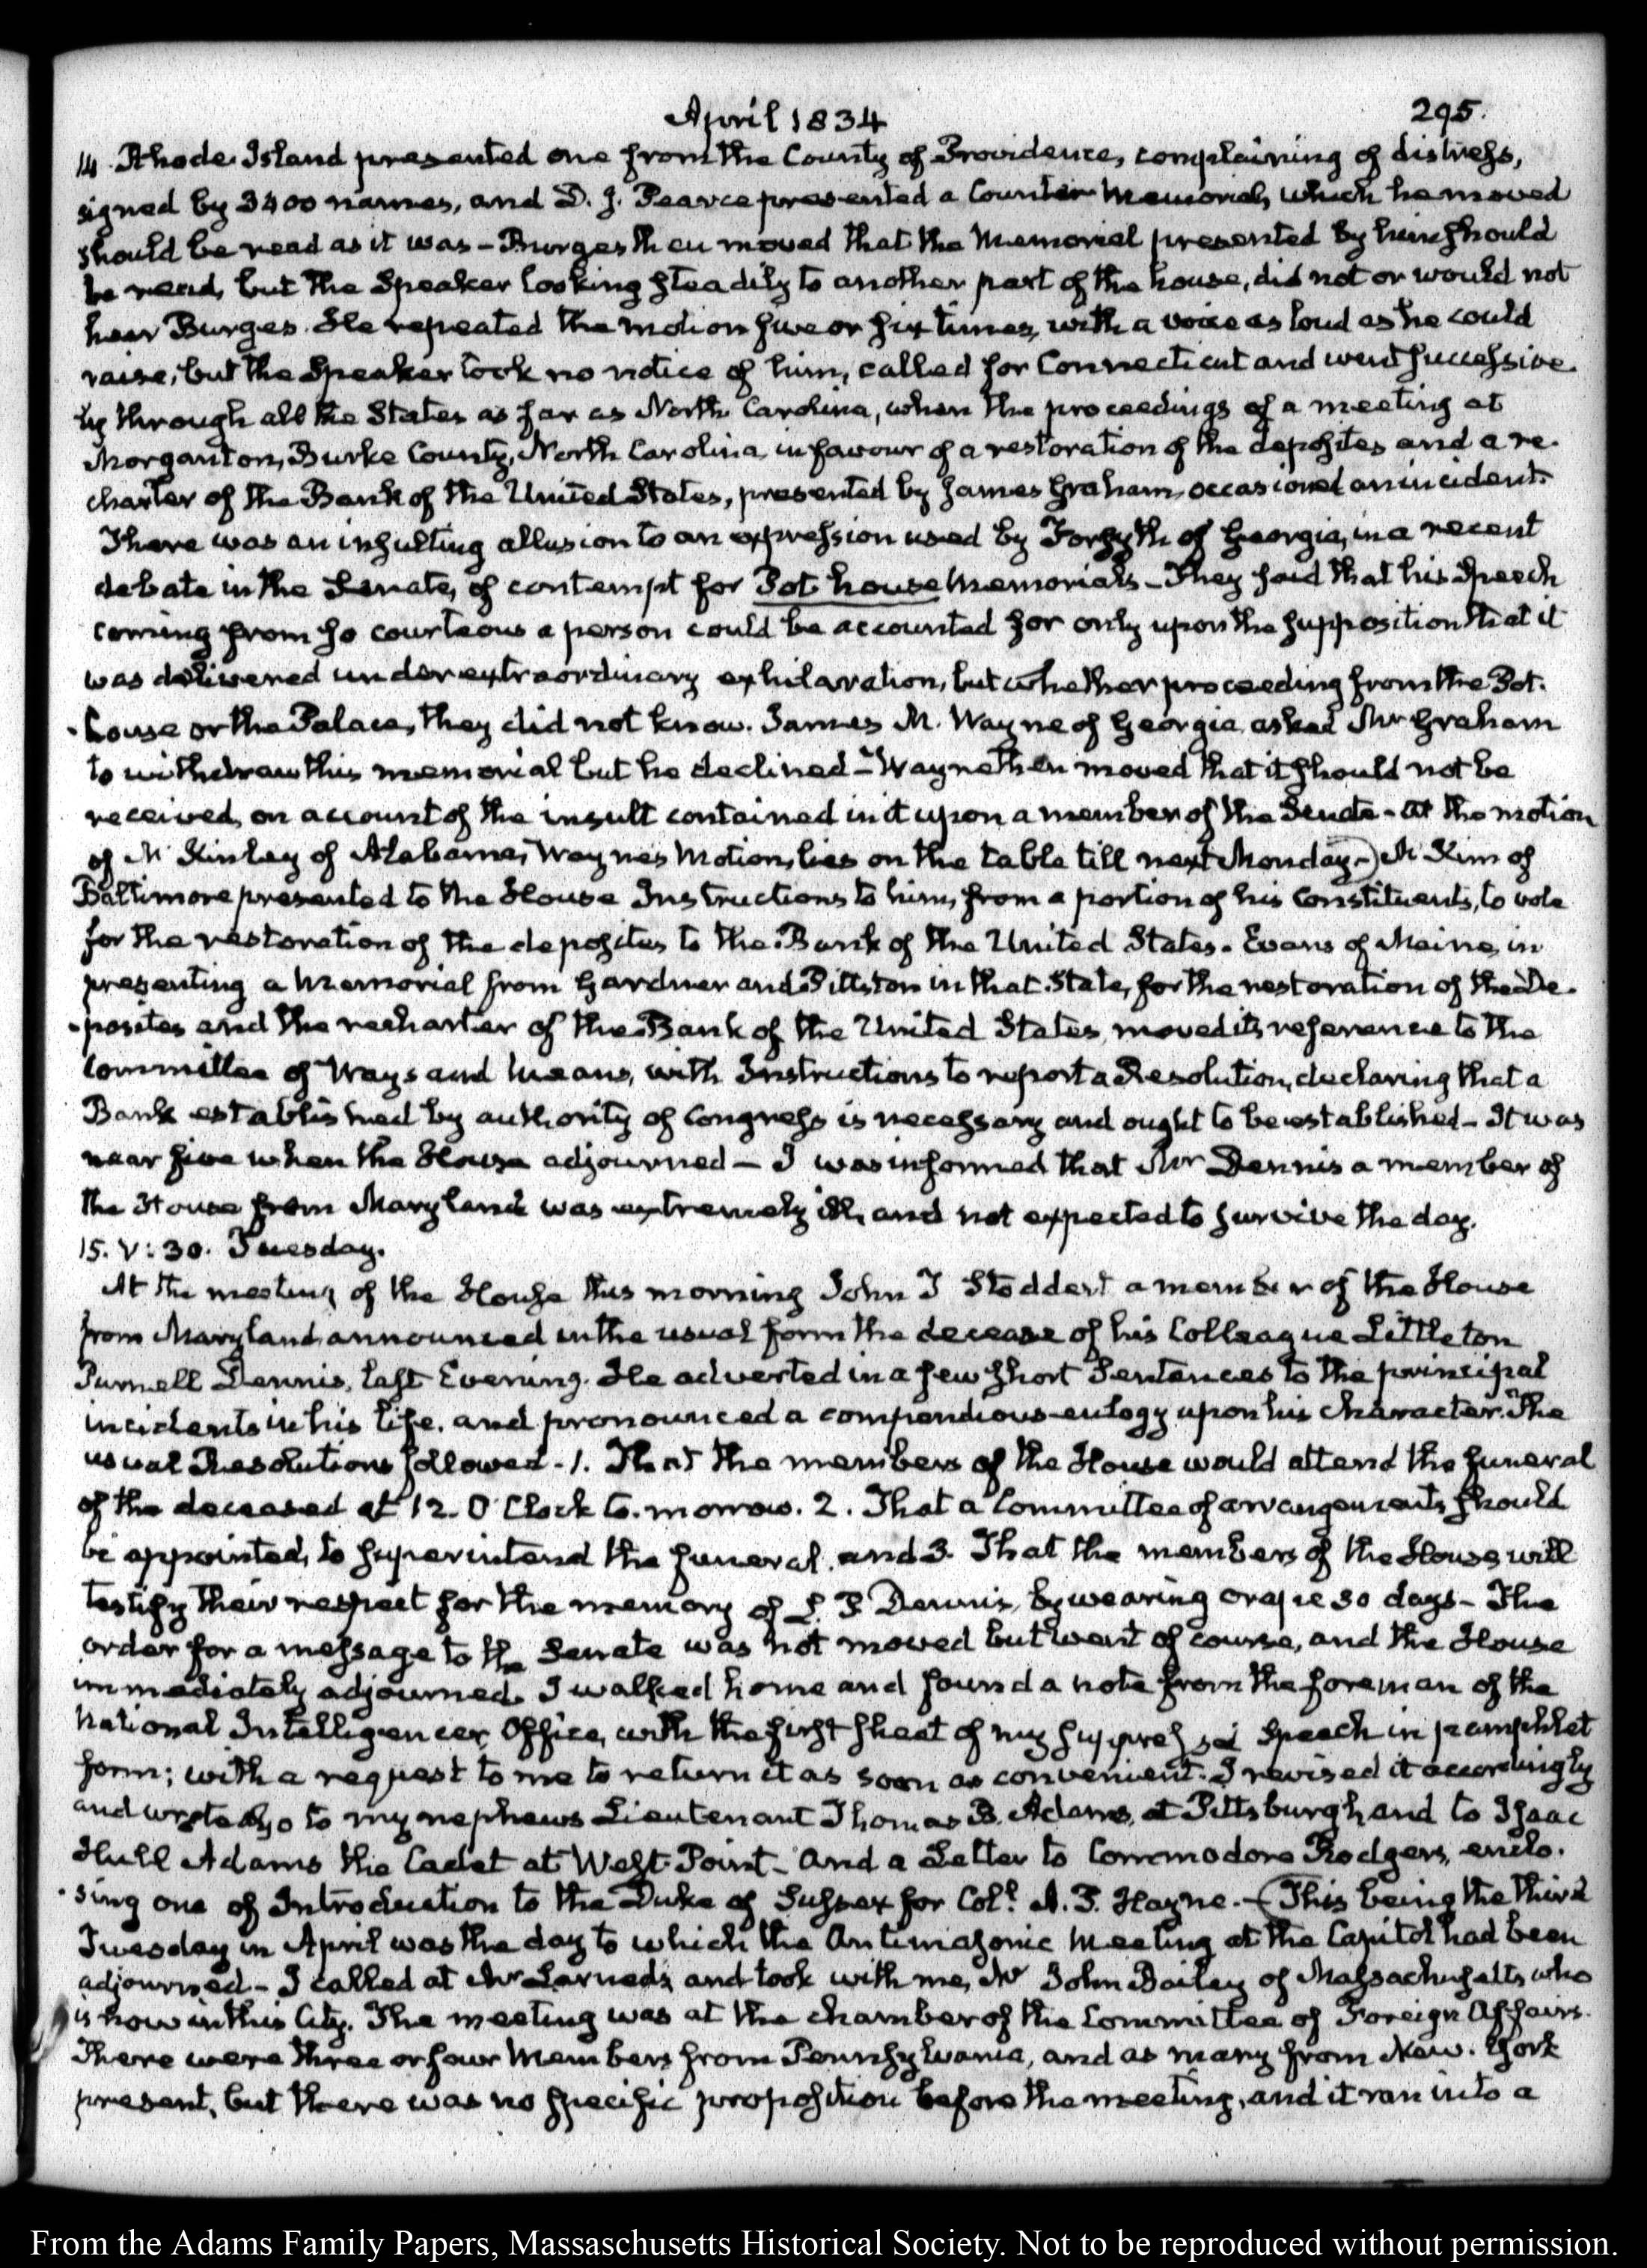 April 1834
295.
14. Rhode Island presented one from the County of Providence, complaining of distress,
signed by 3400 names, and D. J. Pearce presented a Counter Memorial, which he moved
should be read as it was – Burges then moved that the Memorial presented by him should
be read, but the Speaker looking steadily to another part of the house, did not or would not
hear Burges. He repeated the motion five or six times, with a voice as loud as he could
raise, but the Speaker took no notice of him, called for Connecticut and went successive-
ly through all the States as far as North Carolina, when the proceedings of a meeting at
Morganton, Burke County, North Carolina in favour of a restoration of the deposites and a re-
charter of the Bank of the United States, presented by James Graham, occasioned an incident.
There was an insulting allusion to an expression used by Forsyth of Georgia, in a recent
debate in the Senate, of contempt for Pot house Memorials – They said that his Speech
coming from so courteous a person could be accounted for only upon the supposition that it
was delivered under extraordinary exhilaration, but whether proceeding from the Pot-
-house or the Palace, they did not know. James M. Wayne of Georgia asked Mr Graham
to withdraw this memorial but he declined – Wayne then moved that it should not be
received, on account of the insult contained in it upon a member of the Senate – at the motion
of Mc Kinley of Alabama, Wayne's Motion, lies on the table till next Monday –) Mc Kim of
Baltimore presented to the House Instructions to him, from a portion of his Constituents, to vote
for the restoration of the deposites to the Bank of the United States. Evans of Maine, in
presenting a Memorial from Gardner and Pittston in that State, for the restoration of the De-
-posites and the recharter of the Bank of the United States, moved its reference to the
Committee of Ways and Means, with Instructions to report a Resolution, declaring that a
Bank established by authority of Congress is necessary and ought to be established – It was
near five when the House adjourned – I was informed that Mr Dennis a member of
the House from Maryland was extremely ill, and not expected to survive the day.
15. V: 30. Tuesday.
At the meeting of the House this morning John T Stoddert a member of the House
from Maryland announced in the usual form the decease of his Colleague Littleton
Purnell Dennis, last Evening. He adverted in a few short Sentences to the principal
incidents in his life, and pronounced a compendious eulogy upon his character. The
usual Resolutions followed – 1. That the members of the House would attend the funeral
of the deceased at 12. O'Clock to-morrow. 2. That a Committee of arrangements should
be appointed, to superintend the funeral. and 3. That the members of the House will
testify their respect for the memory of L. P. Dennis, by wearing crape 30 days – The
order for a message to the Senate was not moved but went of course, and the House
immediately adjourned. I walked home and found a note from the foreman of the
National Intelligencer Office, with the first sheet of my suppressed Speech in pamphlet
form; with a request to me to return it as soon as convenient. I revised it accordingly
and wrote also to my nephews Lieutenant Thomas B. Adams, at Pittsburgh and to Isaac
Hull Adams the Cadet at West-Point – And a Letter to Commodore Rodgers, enclo-
-sing one of Introduction to the Duke of Sussex for Coll. A. P. Hayne. – (This being the third
Tuesday in April was the day to which the Antimasonic Meeting at the Capitol had been
adjourned – I called at Mr Larned's and took with me, Mr John Bailey of Massachusetts, who
is now in this City. The meeting was at the chamber of the Committee of Foreign Affairs.
There were three or four Members from Pennsylvania, and as many from New-York
present, but there was no specific proposition before the meeting, and it ran into a
From the Adams Family Papers, Massaschusetts Historical Society. Not to be reproduced without permission.